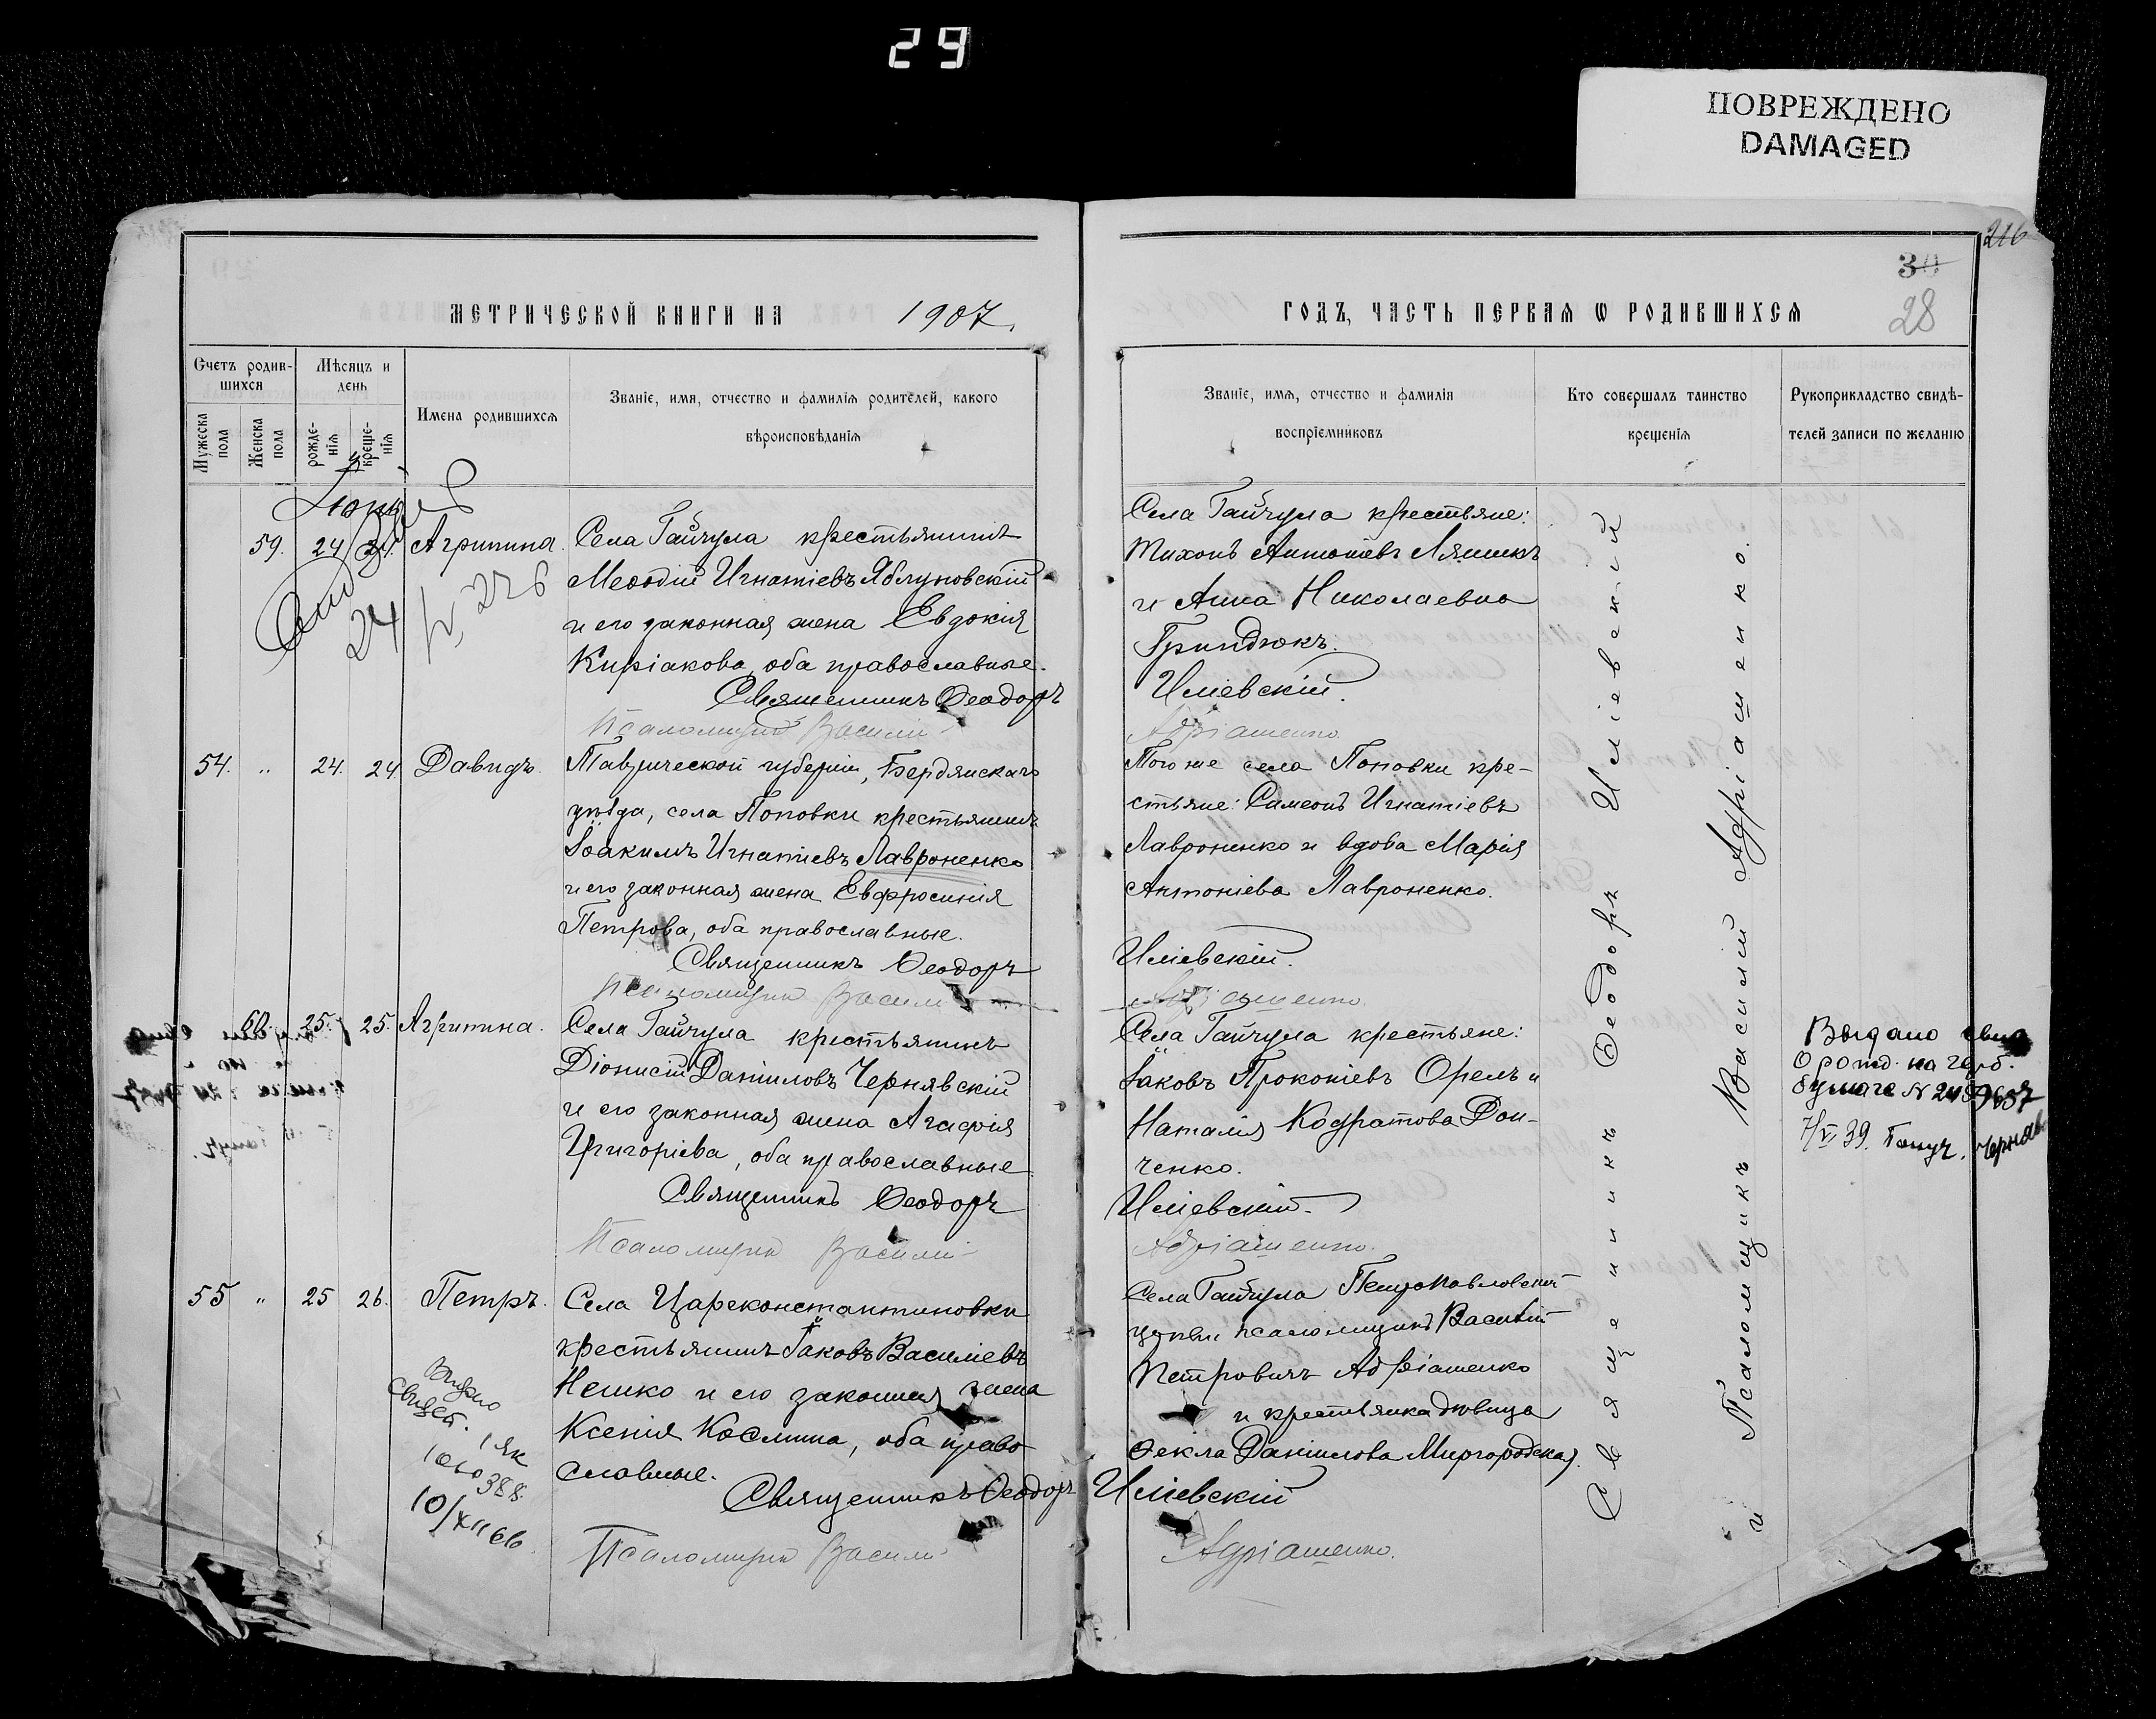 29
ПОВРЕЖДЕНО
DAMAGED
216
30
28
МЕТРИЧЕСКОЙ КНИГИ НА 1907
Счетъ родив-
шихся
Мѣсяцъ и
день
Мужеска
пола
Женска
пола
рожде-
нія
креще-
нія
Имена родившихся
Званіе, имя, отчество и фамилія родителей, какого
вѣроисповѣданія
59. 24 24 Агрипина. Села Гайчула крестьянинъ
Меѳодій Игнатіевъ Яблуновскій
и его законная жена Евдокія
Киріакова, оба православные.
Священникъ Ѳеодоръ
Псаломщикъ Василій
24
54. " 24. 24 Давидъ. Таврической губерніи, Бердянскаго
уѣзда, села Поповки крестьянинъ
Іоакимъ Игнатіевъ Лавроненко
и его законная жена Евфросинія
Петрова, оба православные.
Священникъ Ѳеодоръ
Псаломщикъ Василій
60. 25. 25. Агрипина. Села Гайчула крестьянинъ
Діонисій Даніиловъ Чернявскій
и его законная жена Агафія
Григоріева, оба православные.
Священникъ Ѳеодоръ
Псаломщикъ Василій
55 " 25 26. Петръ. Села Цареконстантиновки
крестьянинъ Іаковъ Василіевъ
Нешко и его законная жена
Ксенія Космина, оба право-
славные.
Священникъ Ѳеодоръ
Псаломщикъ Василій
388.
10/XII 66
ГОДЪ, ЧАСТЬ ПЕРВАЯ Ѡ РОДИВШИХСЯ
Званіе, имя, отчество и фамилія
воспріемниковъ
Кто совершалъ таинство
крещенія
Рукоприкладство свидѣ-
телей записи по желанію
Села Гайчула крестьяне:
Тихонъ Антоніевъ Ляшикъ
и Анна Николаевна
Гриндюкъ.
Иліевскій.
Адріашенко.
Того же села Поповки кре-
стьяне: Симеонъ Игнатіевъ
Лавроненко и вдова Марія
Антоніева Лавроненко.
Иліевскій.
Адріашенко.
Села Гайчула крестьяне:
Іаковъ Прокопіевъ Орелъ и
Наталія Кодратова Дон-
ченко.
Иліевскій.
Адріашенко.
Села Гайчула Петропавловской
церкви псаломщикъ Василій
Петровичъ Адріашенко
и крестьянка дѣвица
Ѳекла Даніилова Миргородская.
Иліевскій
Адріашенко.
Священникъ Ѳеодоръ Иліевскій
и Псаломщикъ Василій Адріашенко.
Выдано
о рожд. на герб.
бумаге №